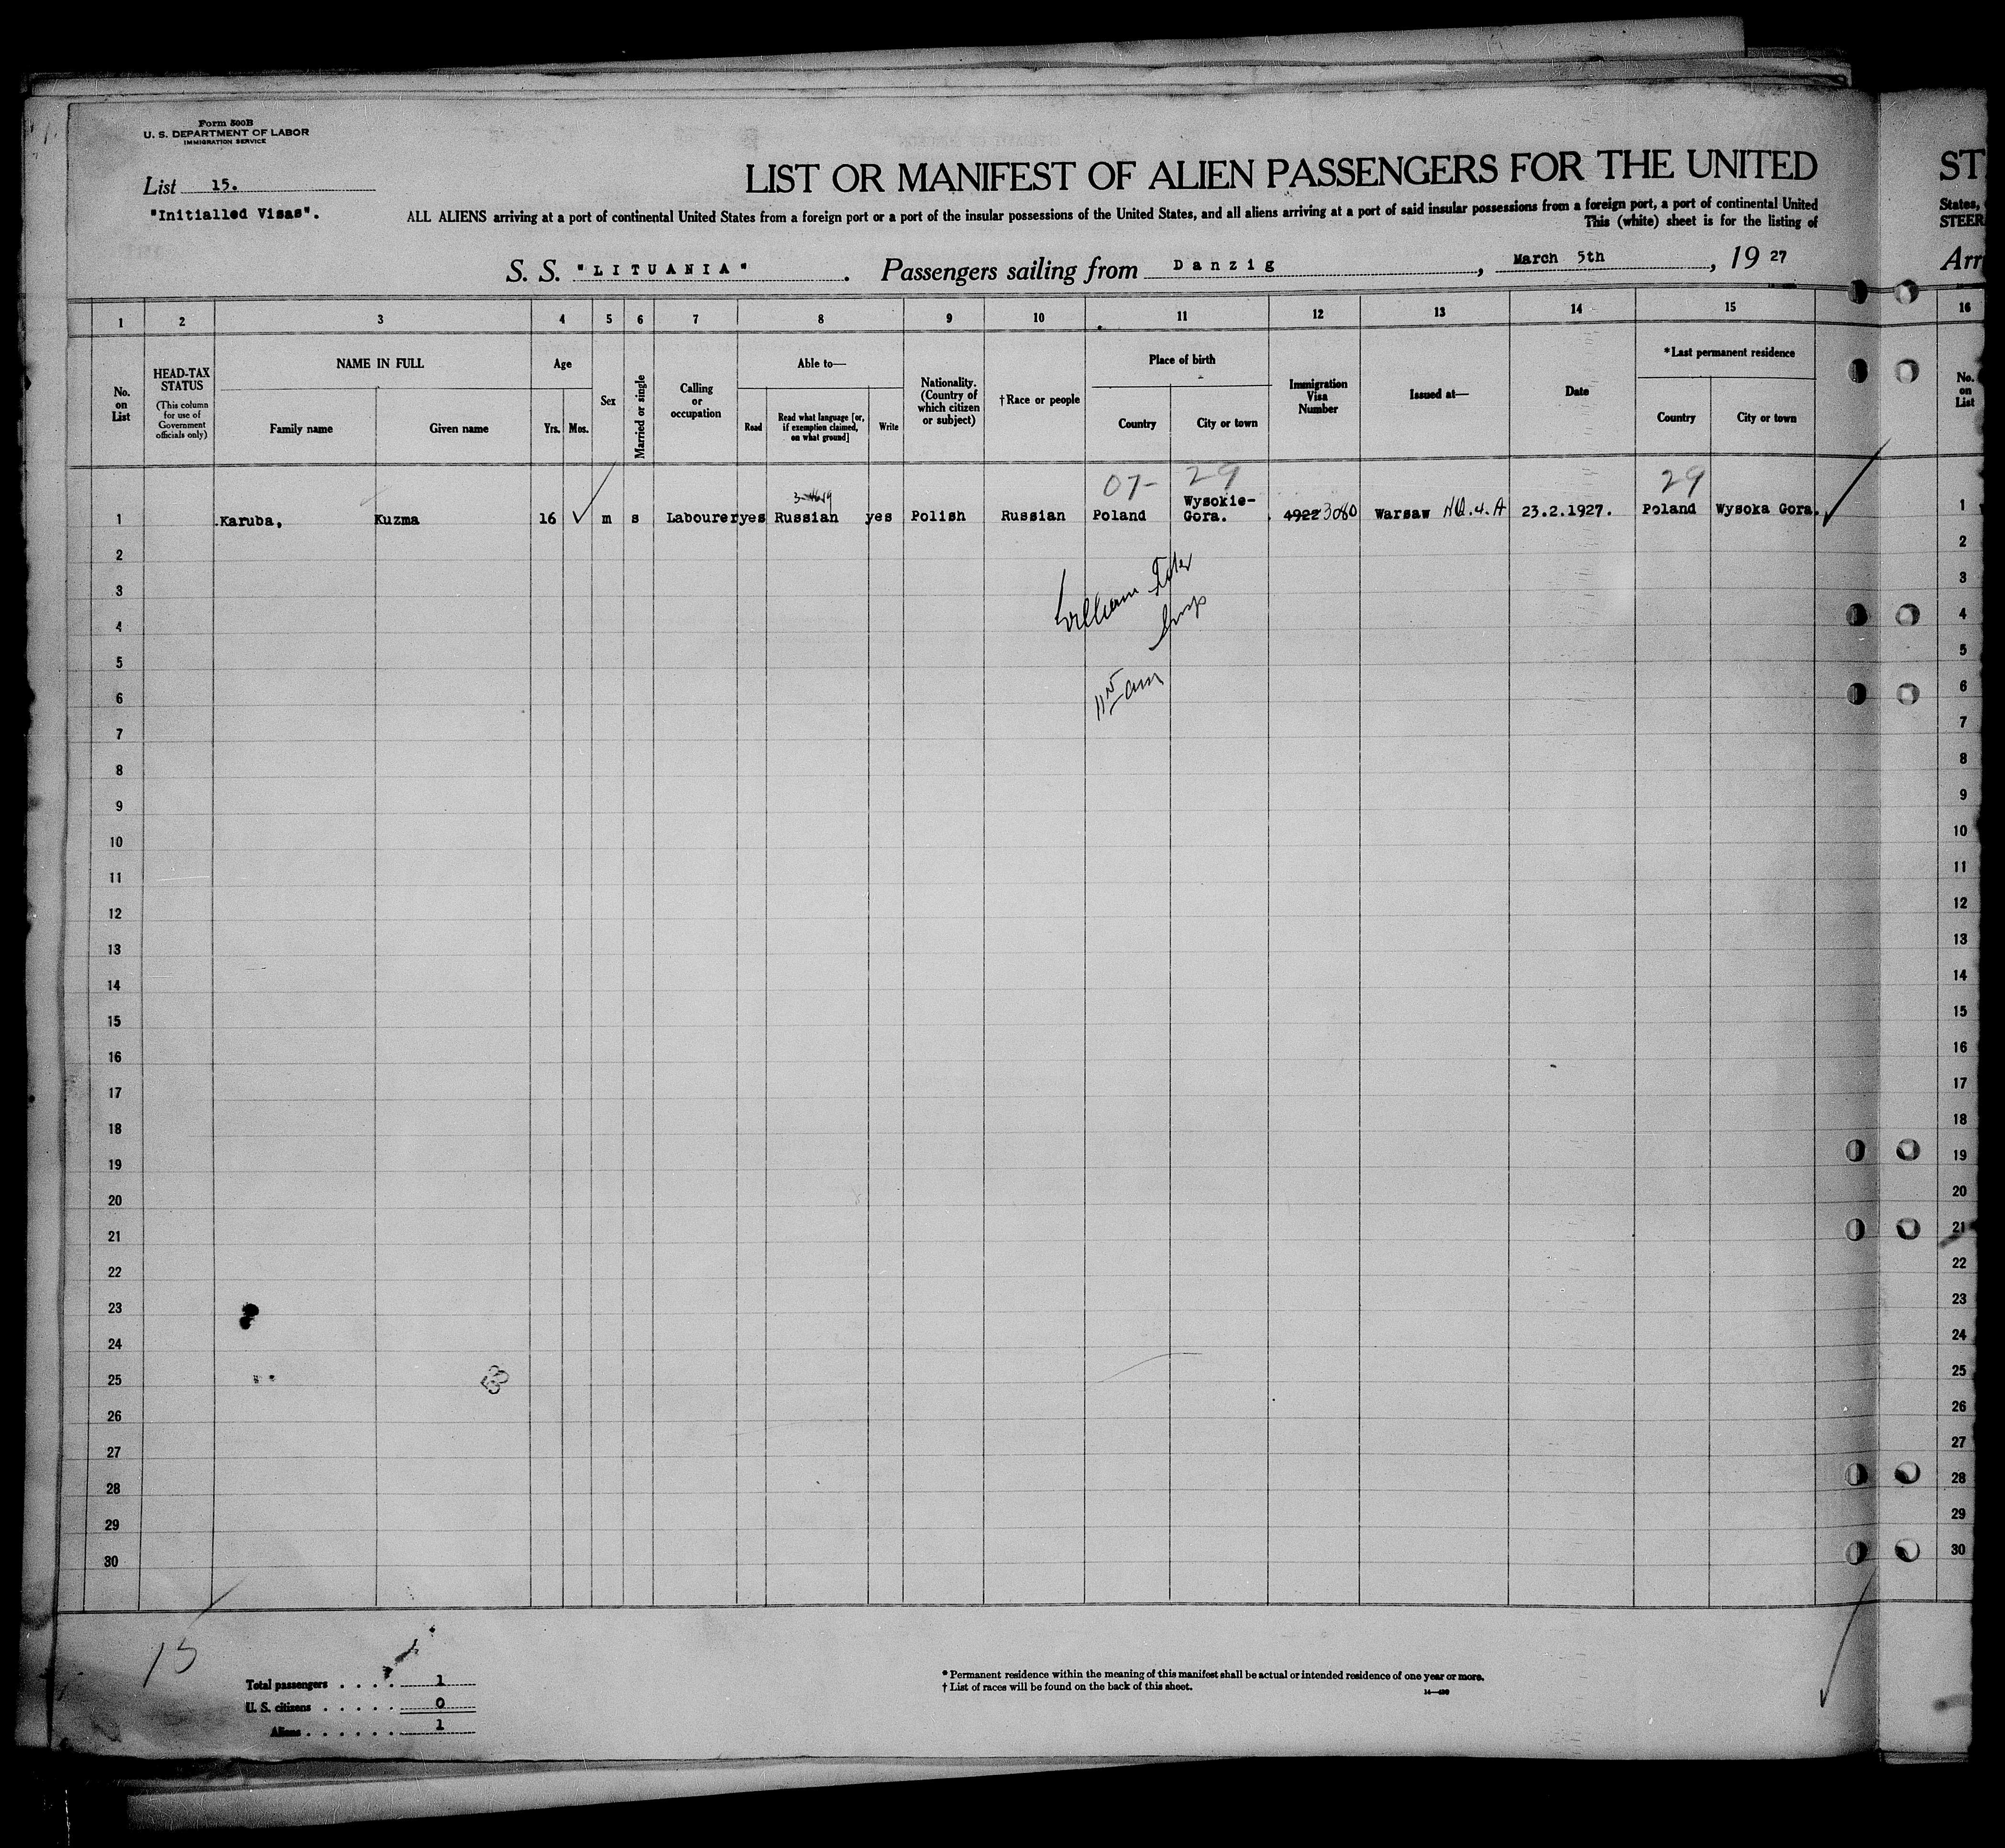 Form 500B
U. S. DEPARTMENT OF LABOR
IMMIGRATION SERVICE
List 15.
"Initialled Visas".
LIST OR MANIFEST OF ALIEN PASSENGERS FOR THE UNITED
ALL ALIENS arriving at a port of continental United States from a foreign port or a port of the insular possessions of the United States, and all aliens arriving at a port of said insular possessions from a foreign port, a port of continental United
This (white) sheet is for the listing of
S. S. "LITUANIA". Passengers sailing from Danzig, March 5th, 19 27
ST
States,
STEER
Arr
1 2 3 4 5 6 7 8 9 10 11 12 13 14 15 16
No. on List
HEAD-TAX STATUS
(This column for use of Government officials only)
NAME IN FULL
Family name Given name
Age
Yrs. Mos.
Sex
Married or single
Calling or occupation
Able to—
Read
Read what language [or, if exemption claimed, on what ground]
Write
Nationality. (Country of which citizen or subject)
†Race or people
Place of birth
Country City or town
Immigration Visa Number
Issued at—
Date
*Last permanent residence
Country City or town
No. on List
07- 29 29
1 Karuba, Kuzma 16 m s Labourer yes Russian yes Polish Russian Poland Wysokie-Gora. 4922 3080 Warsaw N.Q.4.A 23.2.1927. Poland Wysoka Gora. 1
2 2
3 William 3
4 4
5 5
6 6
7 7
8 8
9 9
10 10
11 11
12 12
13 13
14 14
15 15
16 16
17 17
18 18
19 19
20 20
21 21
22 22
23 23
24 24
25 53 25
26 26
27 27
28 28
29 29
30 30
15
Total passengers . . . . 1
U. S. citizens . . . . . 0
Aliens . . . . . . 1
* Permanent residence within the meaning of this manifest shall be actual or intended residence of one year or more.
† List of races will be found on the back of this sheet.